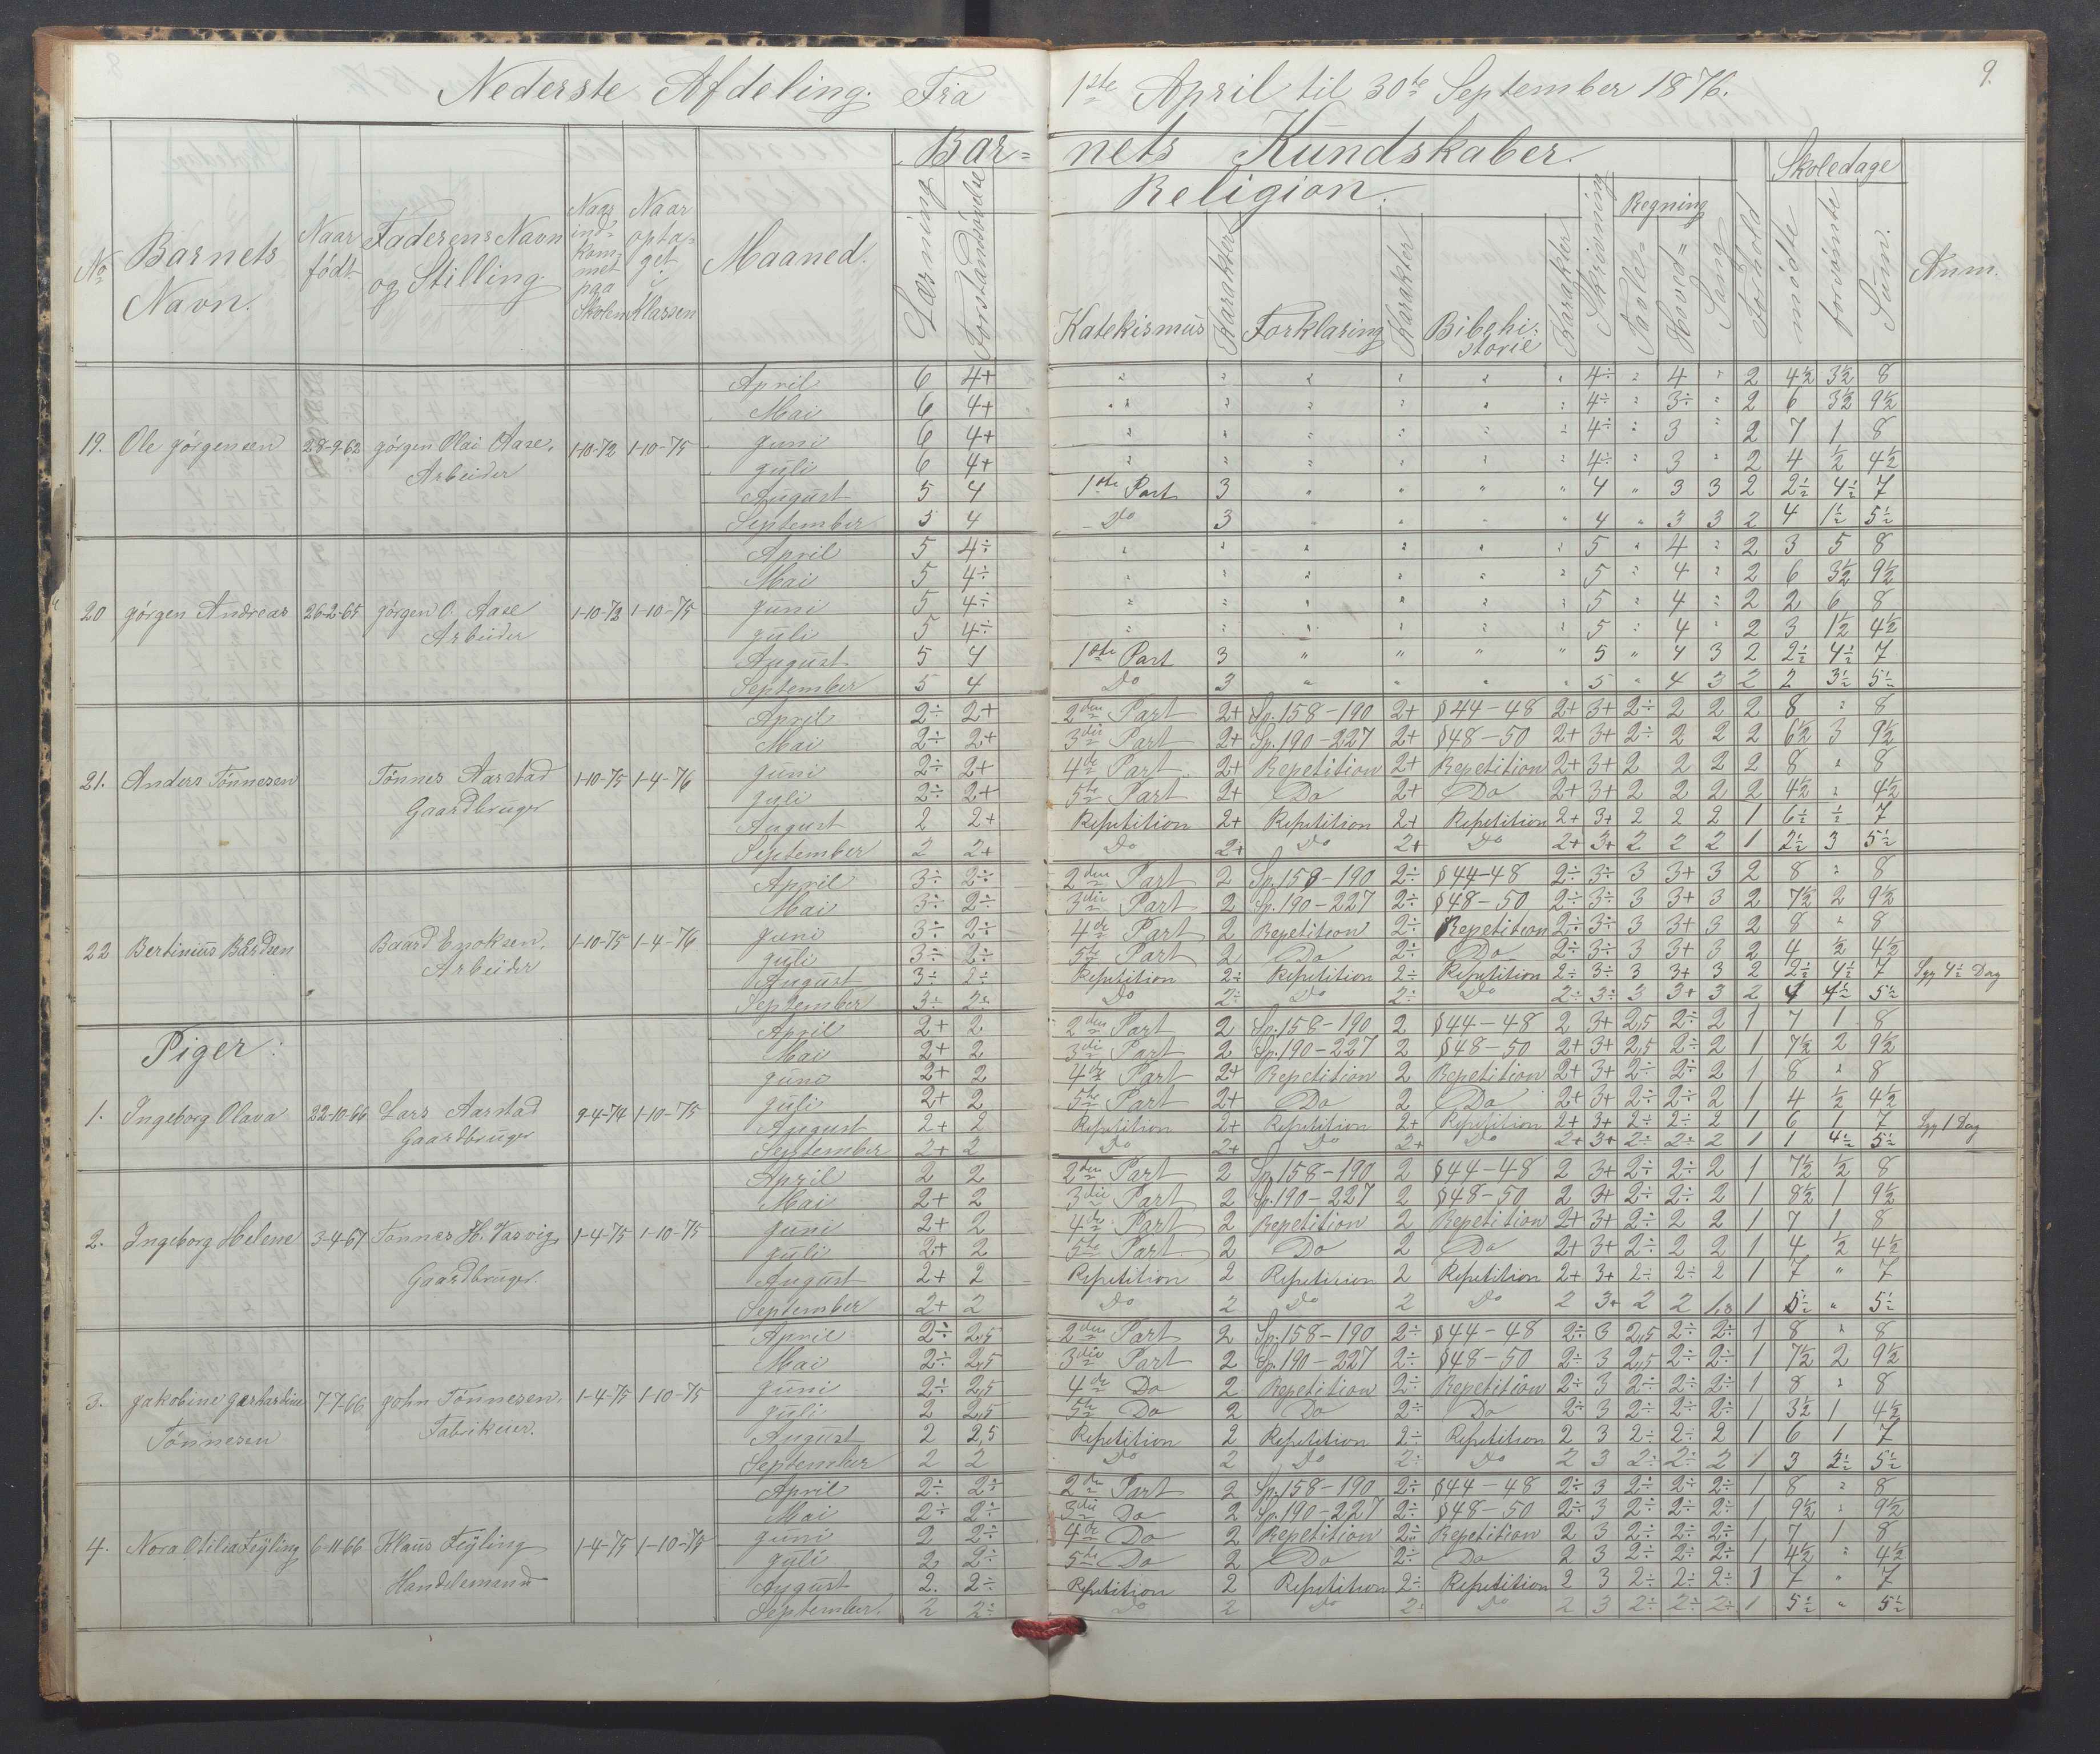 Nederste Afdeling. Fra 1ste April til 30te September 1876.
9.
Barnets Kundskaber.
Religion.
Regning
Skoledage
No
Barnets Navn.
Naar født
Faderens Navn og Stilling
Naar indkommet paa Skolen
Naar optaget i Klassen
Maaned.
Læsning
Forstandsøvelse
Katekismus
Karakter
Forklaring
Karakter
Bibelhistorie
Karakter
Skrivning
Tavle=
Hoved=
Sang
Forhold
mødte
forsømte
Sum.
Anm.
19. Ole Jørgensen 28-9-62 Jørgen Olai Aase, Arbeider 1-10-72 1-10-75
April 6 4+ " " " " " " 4÷ " 4 " 2 4½ 3½ 8
Mai 6 4+ " " " " " " 4÷ " 3÷ " 2 6 3½ 9½
Juni 6 4+ " " " " " " 4÷ " 3 " 2 7 1 8
Juli 6 4+ " " " " " " 4÷ " 3 " 2 4 ½ 4½
August 5 4 1ste Part 3 " " " " 4 " 3 3 2 2½ 4½ 7
September 5 4 Do 3 " " " " 4 " 3 3 2 4 1½ 5½
20 Jørgen Andreas 26-2-65 Jørgen O. Aase Arbeider 1-10-72 1-10-75
April 5 4÷ " " " " " " 5 " 4 " 2 3 5 8
Mai 5 4÷ " " " " " " 5 " 4 " 2 6 3½ 9½
Juni 5 4÷ " " " " " " 5 " 4 " 2 2 6 8
Juli 5 4÷ " " " " " " 5 " 4 " 2 3 1½ 4½
August 5 4 1ste Part 3 " " " " 5 " 4 3 2 2½ 4½ 7
September 5 4 Do 3 " " " " 5 " 4 3 2 2 3½ 5½
21. Anders Tønnesen Tønnes Aarstad Gaardbruger 1-10-75 1-4-76
April 2÷ 2+ 2den Part 2+ Sp. 158-190 2+ § 44-48 2+ 3+ 2÷ 2 2 2 8 " 8
Mai 2÷ 2+ 3die Part 2+ Sp. 190-227 2+ § 48-50 2+ 3+ 2÷ 2 2 2 6½ 3 9½
Juni 2÷ 2+ 4de Part 2+ Repetition 2+ Repetition 2+ 3+ 2 2 2 2 8 " 8
Juli 2÷ 2+ 5te Part 2+ Do 2+ Do 2+ 3+ 2 2 2 2 4½ " 4½
August 2 2+ Repetition 2+ Repetition 2+ Repetition 2+ 3+ 2 2 2 1 6½ ½ 7
September 2 2+ Do 2+ Do 2+ Do 2+ 3+ 2 2 2 1 2½ 3 5½
22 Bertinius Bårdsen Baard Enoksen, Arbeider 1-10-75 1-4-76
April 3÷ 2÷ 2den Part 2 Sp. 158-190 2÷ § 44-48 2÷ 3÷ 3 3+ 3 2 8 " 8
Mai 3÷ 2÷ 3die Part 2 Sp. 190-227 2÷ § 48-50 2÷ 3÷ 3 3+ 3 2 7½ 2 9½
Juni 3÷ 2÷ 4de Part 2 Repetition 2÷ Repetition 2÷ 3÷ 3 3+ 3 2 8 " 8
Juli 3÷ 2÷ 5te Part 2 Do 2÷ Do 2÷ 3÷ 3 3+ 3 2 4 ½ 4½
August 3÷ 2÷ Repetition 2÷ Repetition 2÷ Repetition 2÷ 3÷ 3 3+ 3 2 2½ 4½ 7 Syg 4½ Dag
September 3÷ 2÷ Do 2÷ Do 2÷ Do 2÷ 3÷ 3 3+ 3 2 4½ 5½
Piger:
1. Ingeborg Olava 22-10-66 Lars Aarstad Gaardbruger 9-4-74 1-10-75
April 2+ 2 2den Part 2 Sp. 158-190 2 § 44-48 2 3+ 2,5 2÷ 2 1 7 1 8
Mai 2+ 2 3die Part 2 Sp. 190-227 2 § 48-50 2+ 3+ 2,5 2÷ 2 1 7½ 2 9½
Juni 2+ 2 4de Part 2+ Repetition 2 Repetition 2+ 3+ 2÷ 2÷ 2 1 8 " 8
Juli 2+ 2 5te Part 2+ Do 2 Do 2+ 3+ 2÷ 2÷ 2 1 4 ½ 4½
August 2+ 2 Repetition 2+ Repetition 2+ Repetition 2+ 3+ 2÷ 2÷ 2 1 6 1 7 Syg 1 Dag
September 2+ 2 Do 2+ Do 2+ Do 2+ 3+ 2÷ 2÷ 2 1 1 4½ 5½
2. Ingeborg Helene 3-4-67 Tønnes H. Vasvig Gaardbruger. 1-4-75 1-10-75
April 2 2 2den Part 2 Sp. 158-190 2 § 44-48 2 3+ 2÷ 2÷ 2 1 7½ ½ 8
Mai 2+ 2 3die Part 2 Sp. 190-227 2 § 48-50 2 3+ 2÷ 2÷ 2 1 8½ 1 9½
Juni 2+ 2 4de Part 2 Repetition 2 Repetition 2+ 3+ 2÷ 2 2 1 7 1 8
Juli 2+ 2 5te Part 2 Do 2 Do 2+ 3+ 2÷ 2 2 1 4 ½ 4½
August 2+ 2 Repetition 2 Repetition 2 Repetition 2+ 3+ 2÷ 2÷ 2 1 7 " 7
September 2+ 2 Do 2 Do 2 Do 2 3+ 2 2 1,8 1 5½ " 5½
3. Jakobine Gerhardine Tønnesen 7-7-66 John Tønnesen, Fabrikeier. 1-4-75 1-10-75
April 2÷ 2,5 2den Part 2 Sp. 158-190 2÷ § 44-48 2÷ 3 2,5 2÷ 2÷ 1 8 " 8
Mai 2÷ 2,5 3die Part 2 Sp. 190-227 2÷ § 48-50 2÷ 3 2,5 2÷ 2÷ 1 7½ 2 9½
Juni 2÷ 2,5 4de Do 2 Repetition 2÷ Repetition 2÷ 3 2÷ 2÷ 2÷ 1 8 " 8
Juli 2 2,5 5te Do 2 Do 2÷ Do 2÷ 3 2÷ 2÷ 2÷ 1 3½ 1 4½
August 2 2,5 Repetition 2 Repetition 2÷ Repetition 2 3 2÷ 2÷ 2 1 6 1 7
September 2 2 Do 2 Do 2÷ Do 2 3 2÷ 2÷ 2 1 3 2½ 5½
4. Nora Otilia Feyling 6-11-66 Klaus Feyling Handelsmand 1-4-75 1-10-75
April 2÷ 2÷ 2den Part 2 Sp. 158-190 2÷ § 44-48 2÷ 3 2÷ 2÷ 2÷ 1 8 " 8
Mai 2÷ 2÷ 3die Do 2 Sp. 190-227 2÷ § 48-50 2÷ 3 2÷ 2÷ 2÷ 1 9½ " 9½
Juni 2 2÷ 4de Do 2 Repetition 2÷ Repetition 2 3 2÷ 2÷ 2÷ 1 7 1 8
Juli 2 2÷ 5te Do 2 Do 2÷ Do 2 3 2÷ 2÷ 2÷ 1 4½ " 4½
August 2. 2÷ Repetition 2 Repetition 2÷ Repetition 2 3 2÷ 2÷ 2÷ 1 7 " 7
September. 2 2÷ Do 2 Do 2÷ Do 2 3 2÷ 2÷ 2÷ 1 5½ " 5½